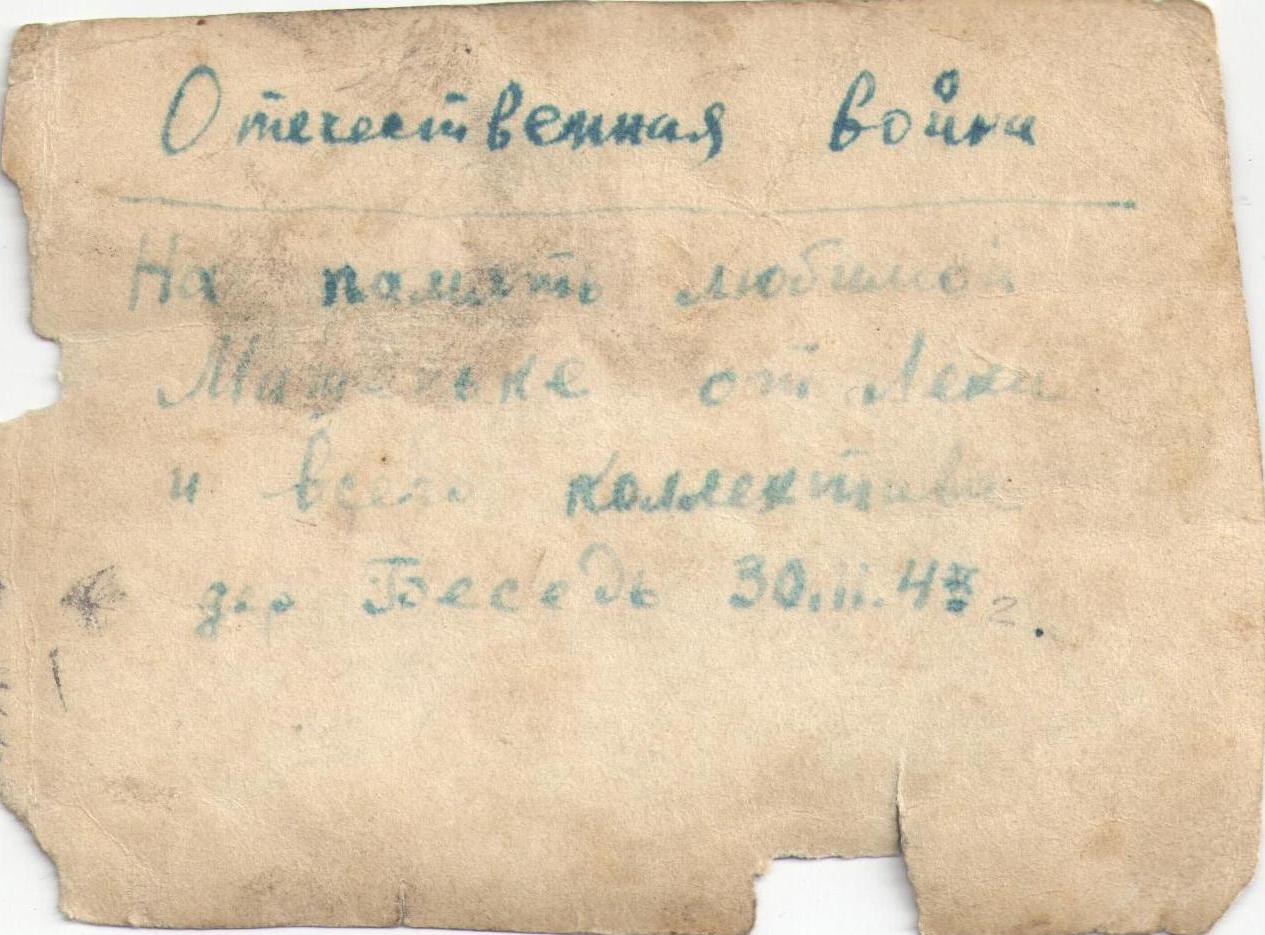 Отечественная война
На память любимой
от Лени
и всего коллектива
дер Беседь 30.11.4 г.